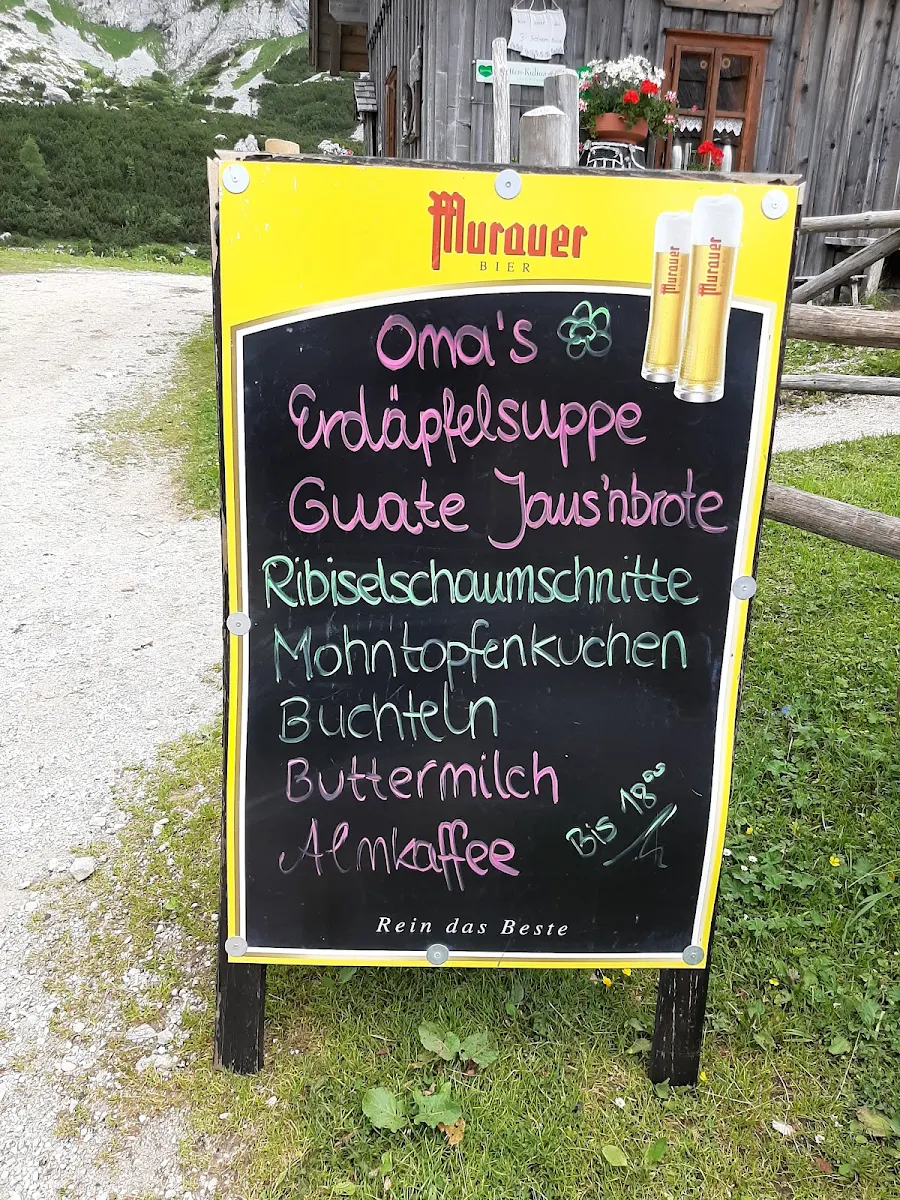 Murauer
BIER
Murauer
Murauer
Oma's
Erdäpfelsuppe
Guate Jaus'nbrote
Ribiselschaumschnitte
Mohntopfenkuchen
Buchteln
Buttermilch
Almkaffee
Bis 18⁰⁰
h
Rein das Beste